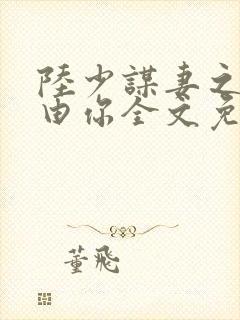 陸少謀妻之
由你全文免
董飛